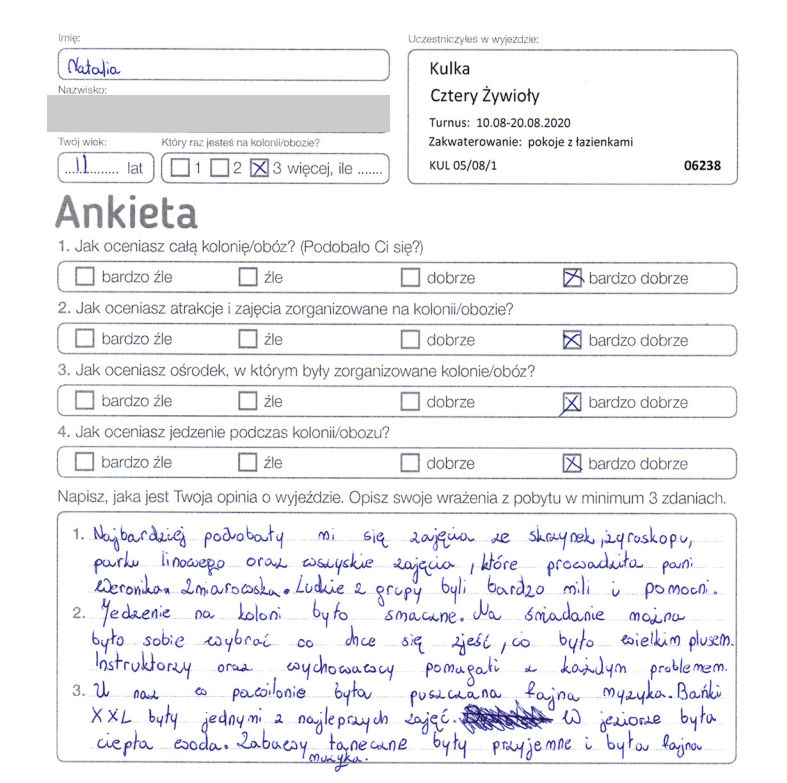 Imię:
Natalia
Nazwisko:
Twój wiek:
....11......... lat
Który raz jesteś na kolonii/obozie?
1 2 3 więcej, ile .......
Uczestniczyłeś w wyjeździe:
Kulka
Cztery Żywioły
Turnus: 10.08-20.08.2020
Zakwaterowanie: pokoje z łazienkami
KUL 05/08/1 06238
Ankieta
1. Jak oceniasz całą kolonię/obóz? (Podobało Ci się?)
bardzo źle źle dobrze bardzo dobrze
2. Jak oceniasz atrakcje i zajęcia zorganizowane na kolonii/obozie?
bardzo źle źle dobrze bardzo dobrze
3. Jak oceniasz ośrodek, w którym były zorganizowane kolonie/obóz?
bardzo źle źle dobrze bardzo dobrze
4. Jak oceniasz jedzenie podczas kolonii/obozu?
bardzo źle źle dobrze bardzo dobrze
Napisz, jaka jest Twoja opinia o wyjeździe. Opisz swoje wrażenia z pobytu w minimum 3 zdaniach.
1. Najbardziej podobały mi się zajęcia ze skrzynek, żyroskopu,
parku linowego oraz wszyskie zajęcia, które prowadziła pani
Weronika Żmiarowska. Ludzie z grupy byli bardzo mili i pomocni.
2. Jedzenie na koloni było smaczne. Na śniadanie można
było sobie wybrać co chce się zjeść, co było wielkim plusem.
Instruktorzy oraz wychowawcy pomagali z każdym problemem.
3. U nas w pawilonie była puszczana fajna myzyka. Bańki
XXL były jednymi z najlepszych zajęć. W jeziorze była
ciepła woda. Zabawy taneczne były przyjemne i była fajna
muzyka.